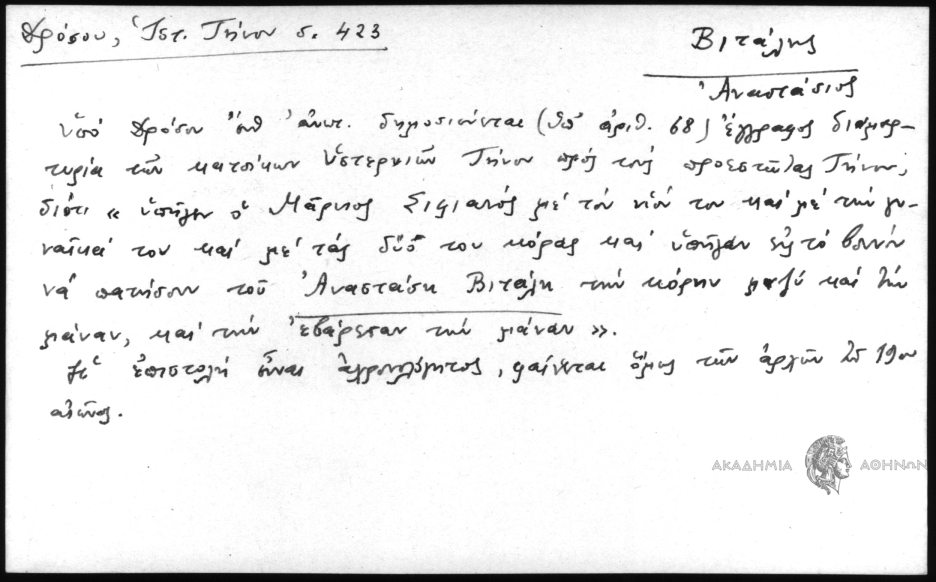 Δρόσου, Ἱστ. Τήνου σ. 423
Βιτάλης
Ἀναστάσιος
Ὑπό Δρόσου ἔνθ' ἀνωτ. δημοσιεύεται (ὑπ' ἀριθ. 68) ἔγγραφος διαμαρ-
τυρία τῶν κατοίκων Ὑστερνιῶν Τήνου πρός τούς προεστῶτας Τήνου,
διότι « ἐπῆγεν ὁ Μάρκος Σιφιανός μέ τόν υἱόν του καί μέ τήν γυ-
ναῖκά του καί μέ τάς δύο του κόρας καί ἐπῆγαν εἰς τό βουνόν
νά πατήσουν τοῦ Ἀναστάση Βιτάλη τήν κόρην μαζύ καί τήν
μάναν, καί τήν ἐβάρεσαν τήν μάναν ».
Ἡ ἐπιστολή εἶναι ἀχρονολόγητος, φαίνεται ὅμως τῶν ἀρχῶν τοῦ 19ου
αἰῶνος.
ΑΚΑΔΗΜΙΑ ΑΘΗΝΩΝ